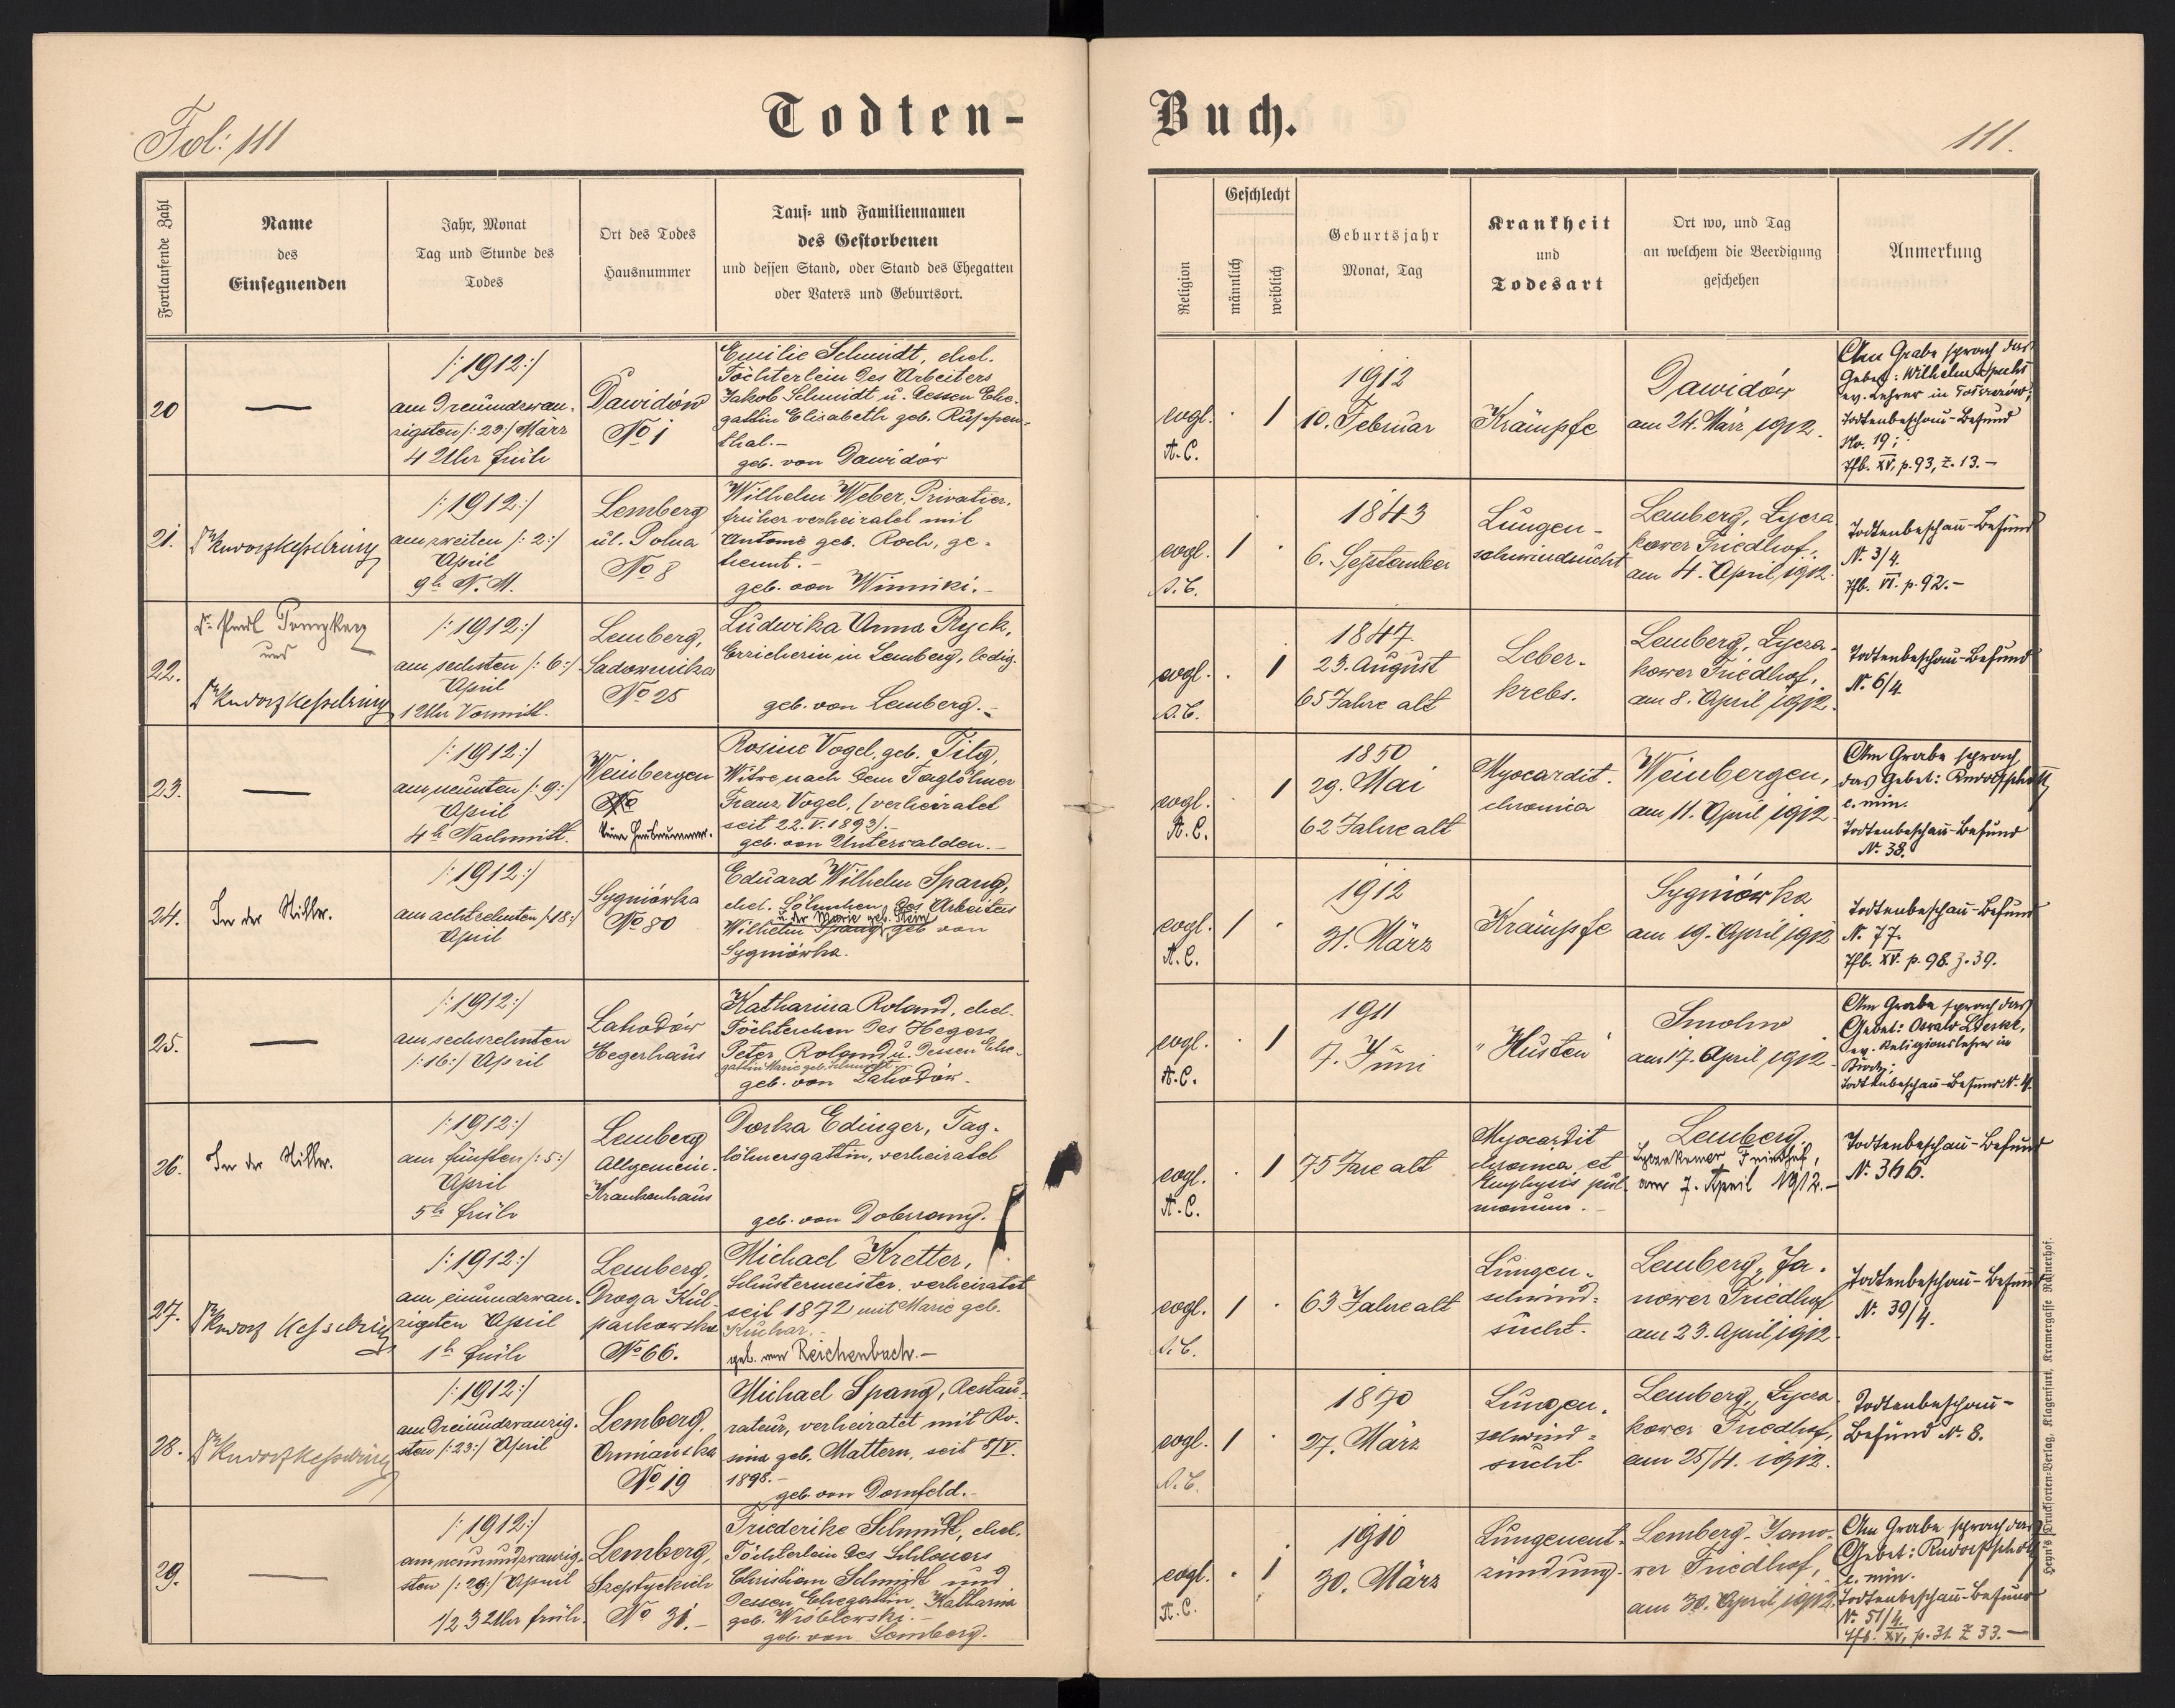 Fol: 111
Todten-
Buch.
111.
Fortlaufende Zahl
Name
des
Einsegnenden
Jahr, Monat
Tag und Stunde des
Todes
Ort des Todes
Hausnummer
Tauf- und Familiennamen
des Gestorbenen
und dessen Stand, oder Stand des Ehegatten
oder Vaters und Geburtsort.
Religion
Geschlecht
männlich
weiblich
Geburtsjahr
Monat, Tag
Krankheit
und
Todesart
Ort wo, und Tag
an welchem die Beerdigung
geschehen
Anmerkung
20
—
/:1912:/
am Dreiundzwan-
zigsten /:23:/ März
4 Uhr früh
Dawidów
No 1
Emilie Schmidt, ehel.
Töchterlein des Arbeiters
Jakob Schmidt u. dessen Ehe-
gattin Elisabeth geb. Ruppen-
thal.-
geb. von Dawidów
evgl.
A.C.
· 1
1912
10. Februar
Krämpfe
Dawidów
am 24. März 1912.
Am Grabe sprach das
Gebet: Wilhelm
ev. Lehrer in
Todtenbeschau-Befund
No. 19;
Tfb. XV, p. 93, Z. 13.-
21.
Dr Rudolf Kesselring
/:1912:/
am zweiten /:2:/
April
9h N. M.
Lemberg
ul. Polna
No 8
Wilhelm Weber, Privatier,
früher verheiratet mit
Antonie geb. Roch, ge-
trennt.-
geb. von Winniki.-
evgl.
A.C.
1 ·
1843
6. September
Lungen-
schwindsucht
Lemberg, Lycza-
kower Friedhof,
am 4. April 1912.
Todtenbeschau-Befund
N. 3/4.
Tfb. VI. p. 92.-
22.
Dr.
und
Dr Rudolf Kesselring
/:1912:/
am sechsten /:6:/
April
1 Uhr Vormitt.
Lemberg,
Sadownicka
No 25
Ludwika Anna Ryck,
Erzieherin in Lemberg, ledig.
geb. von Lemberg.-
evgl.
A.C.
· 1
1847
23. August
65 Jahre alt
Leber-
krebs.
Lemberg, Lycza-
kower Friedhof,
am 8. April 1912.
Todtenbeschau-Befund
N. 6/4.
23.
—
/:1912:/
am neunten /:9:/
April
4h Nachmitt.
Weinbergen
No
keine Hausnummer.
Rosine Vogel, geb. Tilg,
Witwe nach dem Taglöhner
Franz Vogel, (verheiratet
seit 22.V.1893).-
geb. von Unterwalden.-
evgl.
A.C.
· 1
1850
29. Mai
62 Jahre alt
Myocardit.
chronica
Weinbergen,
am 11. April 1912
Am Grabe sprach
das Gebet: Rudolf
c. min.
Todtenbeschau-Befund
N. 38.
24.
In der Stille.
/:1912:/
am achtzehnten /:18:/
April
Sygniówka
No 80
Eduard Wilhelm Spang,
ehel. Söhnchen des Arbeiters
u. der Marie geb. Stein
Wilhelm Spang, geb von
Sygniówka.
evgl.
A.C.
1 ·
1912
31. März
Krämpfe
Sygniówka
am 19. April 1912
Todtenbeschau-Befund
N. 77.
Tfb. XV. p. 98. Z. 39.
25.
—
/:1912:/
am sechszehnten
/:16:/ April
Lahodów
Hegerhaus
Katharina Roland, ehel.
Töchterchen des Hegers
Peter Roland u. dessen Ehe-
gattin Marie geb.
geb. von Lahodów.
evgl.
A.C.
· 1
1911
7. Juni
"Husten"
Smolno
am 17. April 1912
Am Grabe sprach das
Gebet: Oswald
ev. Religionslehrer in
Todtenbeschau-Befund N. 4.
26.
In der Stille.
/:1912:/
am fünften /:5:/
April
5h früh
Lemberg
Allgemein.
Krankenhaus
Dorka Edinger, Tag-
löhnersgattin, verheiratet
geb. von
evgl.
A.C.
· 1
75 Jare alt
Myocardit
chronica et
Emphysis pul-
monum.-
Lemberg
Lyczakower Friedhof,
am 7. April 1912.-
Todtenbeschau-Befund
N. 366.
27.
Dr Rudolf Kesselring
/:1912:/
am einundzwan-
zigsten April
1h früh
Lemberg,
Droga Kul-
parkowska
No 66.
Michael Kretter,
Schustermeister, verheiratet
seit 1872 mit Marie geb.
Kuchar.-
geb. von Reichenbach.-
evgl.
A.C.
1 ·
63 Jahre alt
Lungen-
schwind-
sucht.
Lemberg, Ja-
nower Friedhof
am 23. April 1912
Todtenbeschau-Befund
N. 39/4.
28.
Dr Rudolf Kesselring
/:1912:/
am Dreiundzwanzig-
sten /:23:/ April
Lemberg,
Ormiańska
No 19
Michael Spang, Restau-
rateur, verheiratet mit Ro-
sina geb. Mattern, seit 8/V.
1898.-
geb. von Dornfeld.-
evgl.
A.C.
1 ·
1870
27. März
Lungen-
schwind-
sucht
Lemberg, Lycza-
kower Friedhof,
am 25/4. 1912.
Todtenbeschau-
Befund N. 8.
29.
—
/:1912:/
am neunundzwanzig-
sten /:29:/ April
1/2 3 Uhr früh.
Lemberg,
Szeptyckich
No 31.-
Friederike Schmidt, ehel.
Töchterlein des Schlossers
Christian Schmidt und
dessen Ehegattin Katharina
geb. Wróblewski.-
geb. von Lemberg.
evgl.
A.C.
· 1
1910
30. März
Lungenent-
zündung.
Lemberg, Jano-
wer Friedhof,
am 30. April 1912.
Am Grabe sprach das
Gebet: Rudolf
c. min.
Todtenbeschau-Befund
N. 51/4.
Tfb. XV, p. 31. Z 33.-
Heyn's Drucksorten-Verlag, Klagenfurt, Kramergasse Rainerhof.